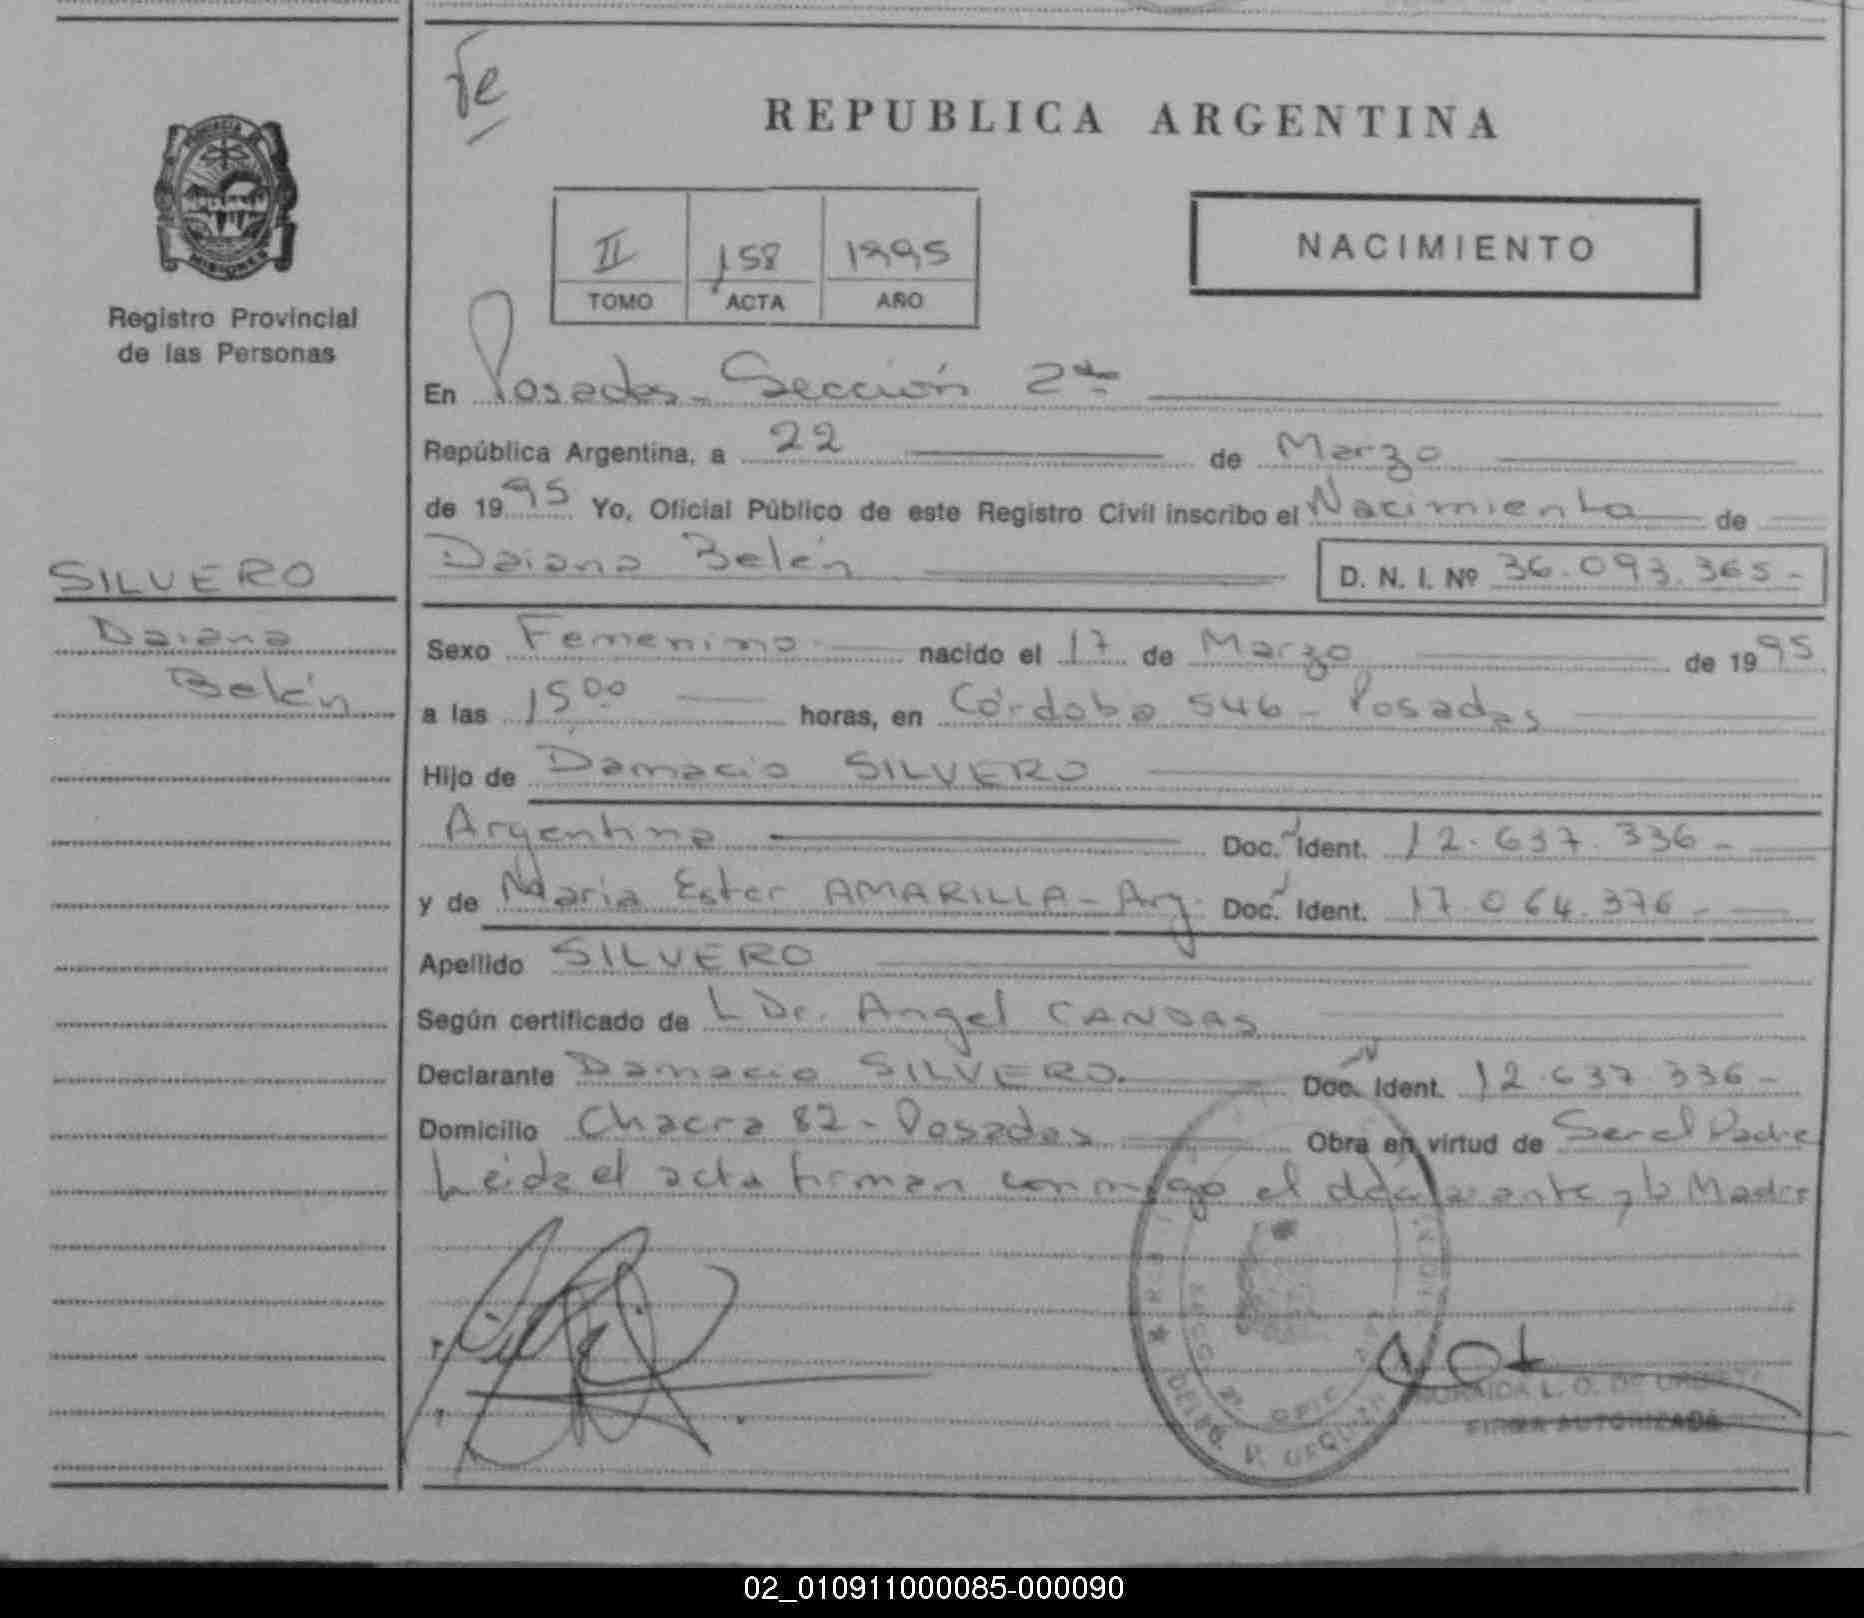 Fe
REPUBLICA ARGENTINA
PROVINCIA DE
MISIONES
Registro Provincial
de las Personas
II 158 1995
TOMO ACTA AÑO
NACIMIENTO
En Posadas - Sección 2da
República Argentina, a 22 de Marzo
de 1995 Yo, Oficial Público de este Registro Civil inscribo el Nacimiento de
Daiana Belén D. N. I. Nº 36.093.365-
SILVERO
Daiana
Belén
Sexo Femenino nacido el 17 de Marzo de 1995
a las 15 00 horas, en Córdoba 546 - Posadas
Hijo de Damacio SILVERO
Argentino Doc. Ident. 12.637.336-
y de María Ester AMARILLA - Arg. Doc. Ident. 17.064.376-
Apellido SILVERO
Según certificado de L Dr. Angel CANDAS
Declarante Damacio SILVERO. Doc. Ident. 12.637.336-
Domicilio Chacra 82 - Posadas Obra en virtud de Ser el Padre
Leida el acta firman conmigo el declarante y la Madre
L. O. DE
FIRMA AUTORIZADA
02_010911000085-000090